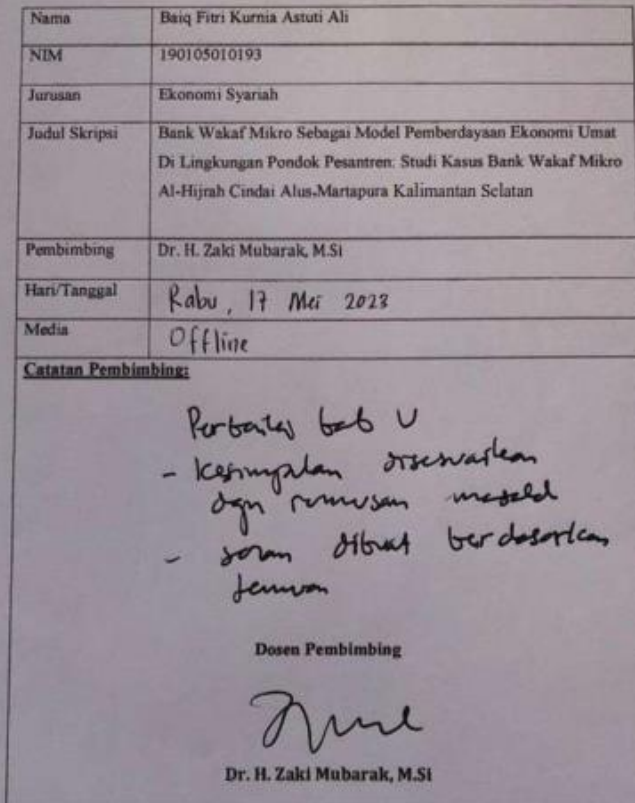 Nama Baiq Fitri Kurnia Astuti Ali
NIM 190105010193
Jurusan Ekonomi Syariah
Judul Skripsi Bank Wakaf Mikro Sebagai Model Pemberdayaan Ekonomi Umat
Di Lingkungan Pondok Pesantren: Studi Kasus Bank Wakaf Mikro
Al-Hijrah Cindai Alus-Martapura Kalimantan Selatan
Pembimbing Dr. H. Zaki Mubarak, M.Si
Hari/Tanggal Rabu, 17 Mei 2023
Media Offline
Catatan Pembimbing:
bab V
- Kesimpulan disesuaikan
dgn rumusan masalah
- saran dibuat berdasarkan
temuan
Dosen Pembimbing
Dr. H. Zaki Mubarak, M.Si